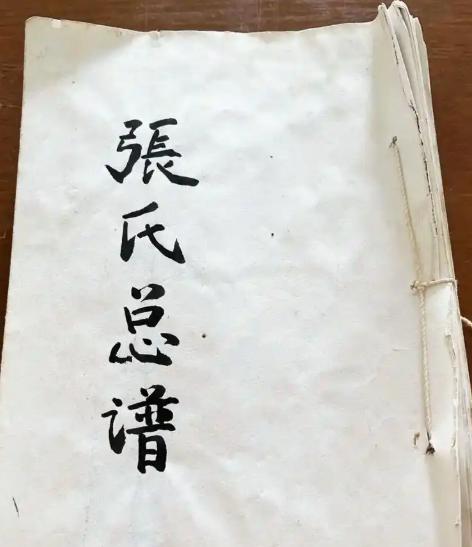 張氏总譜